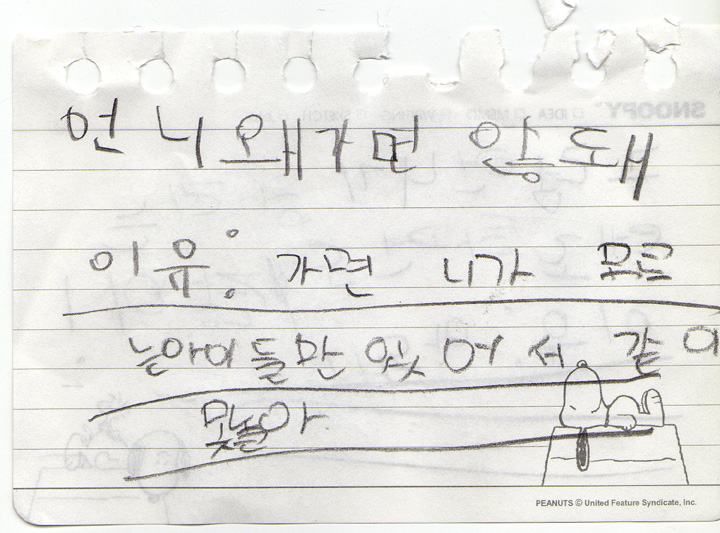 언니 왜 가면 않돼
이유: 가면 니가 모르
는아이들만 잇어서 같이
못놀아
PEANUTS © United Feature Syndicate, Inc.